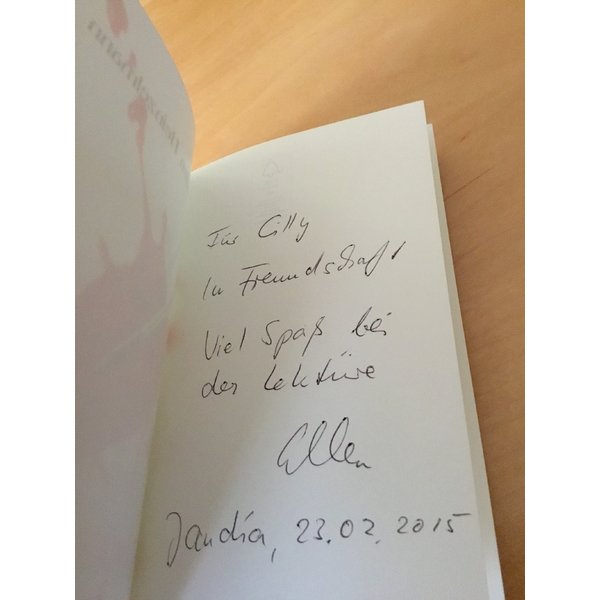 Für Cilly
In Freundschaft
Viel Spaß bei
der Lektüre
Ellen
Jandía, 23.02.2015